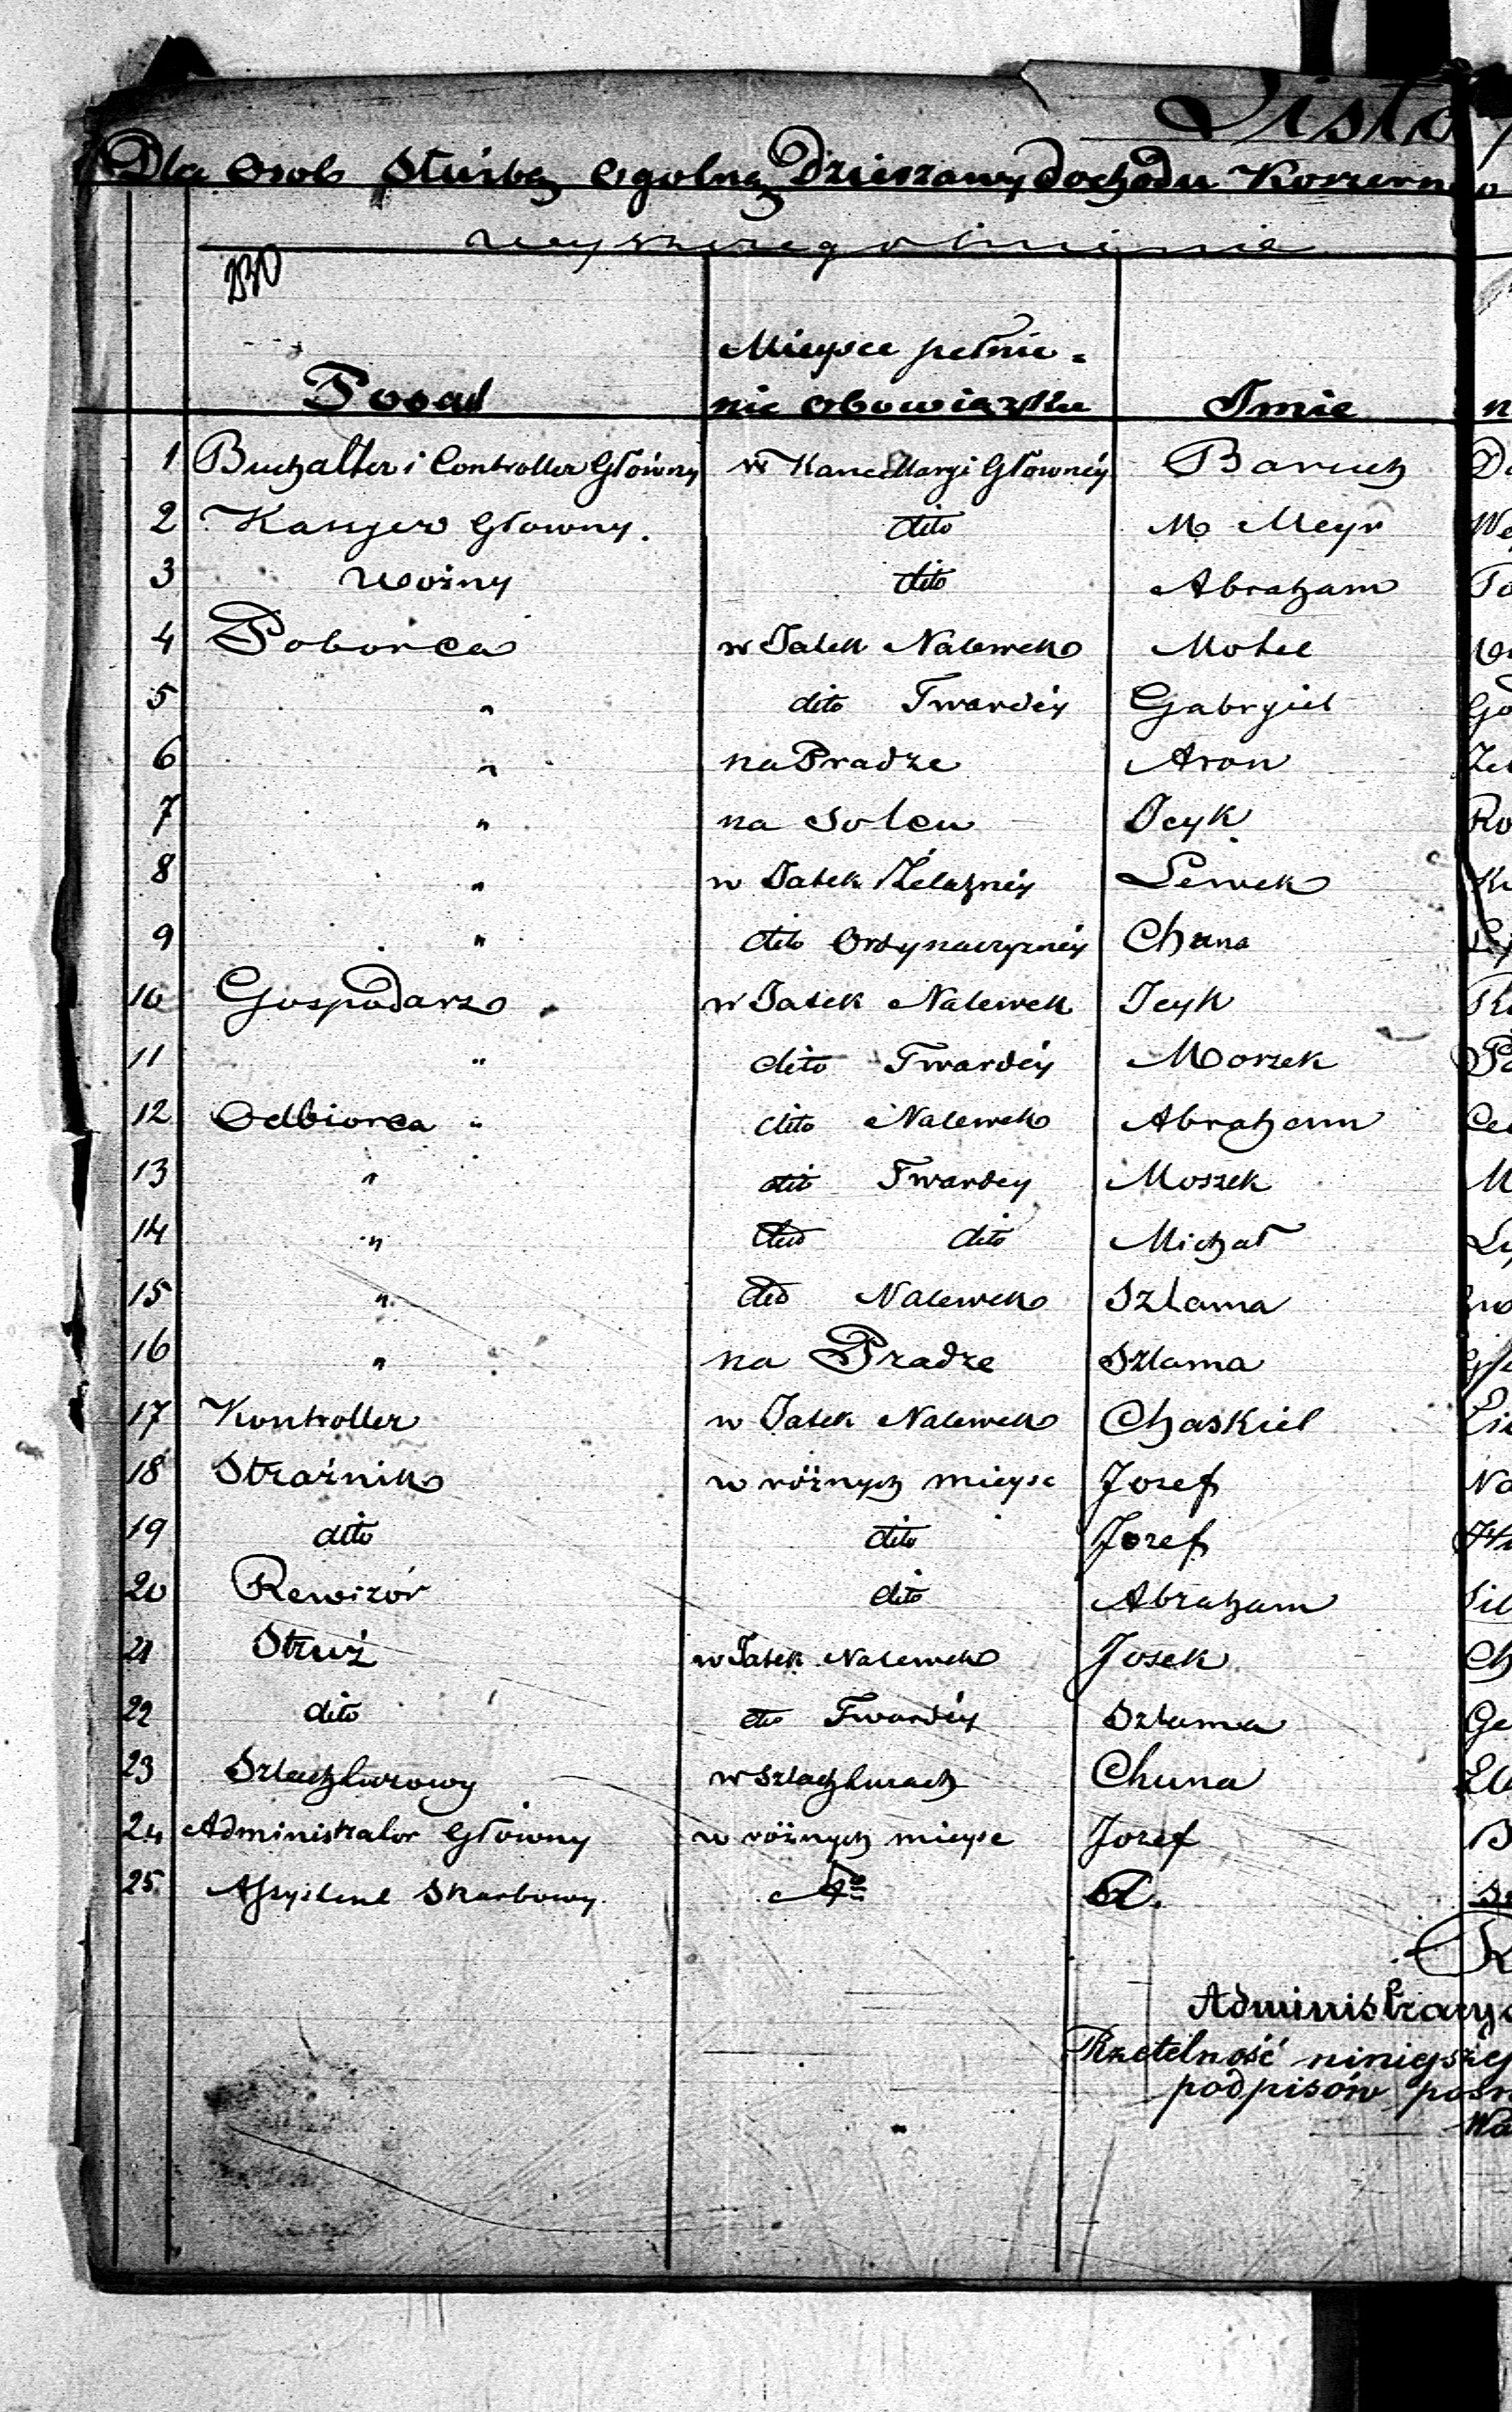 Lista
Dla osob Służbą Ogolną Dzierzawy dochodu Koszern
wyszczegolnienie
Posad
Mieysce pełnie-
nie obowiązku
Imie
1 Buchalter i Controller Główny w Kancellaryi Głowney Baruch
2 Kassyer Głowny. dito M Meyr
3 Woźny dito Abraham
4 Poborca w Jatek Nalewek Motel
5 " dito Twardéy Gabryiel
6 " na Pradze Aron
7 " na Solcu Icyk
8 " w Jatek Żelazney Lewek
9 " dito Ordynaczyney Chuna
10 Gospodarz w Jatek Nalewek Icyk
11 " dito Twardéy Moszek
12 Odbiorca " dito Nalewek Abraham
13 " dito Twardey Moszek
14 " dito dito Michał
15 " dito Nalewek Szlama
16 " na Pradze Szlama
17 Kontroller w Jatek Nalewek Chaskiel
18 Strażnik w różnych mieysc Jozef
19 dito dito Jozef
20 Rewizór dito Abraham
21 Struż w Jatek Nalewek Josek
22 dito dto Twardéy Szlama
23 Szlachturowy w Szlachturach Chuna
24 Administrator Główny w różnych mieysc Jozef
25 Assystent Skarbowy.
Administracy
Rzetelność niniejszej
podpisów